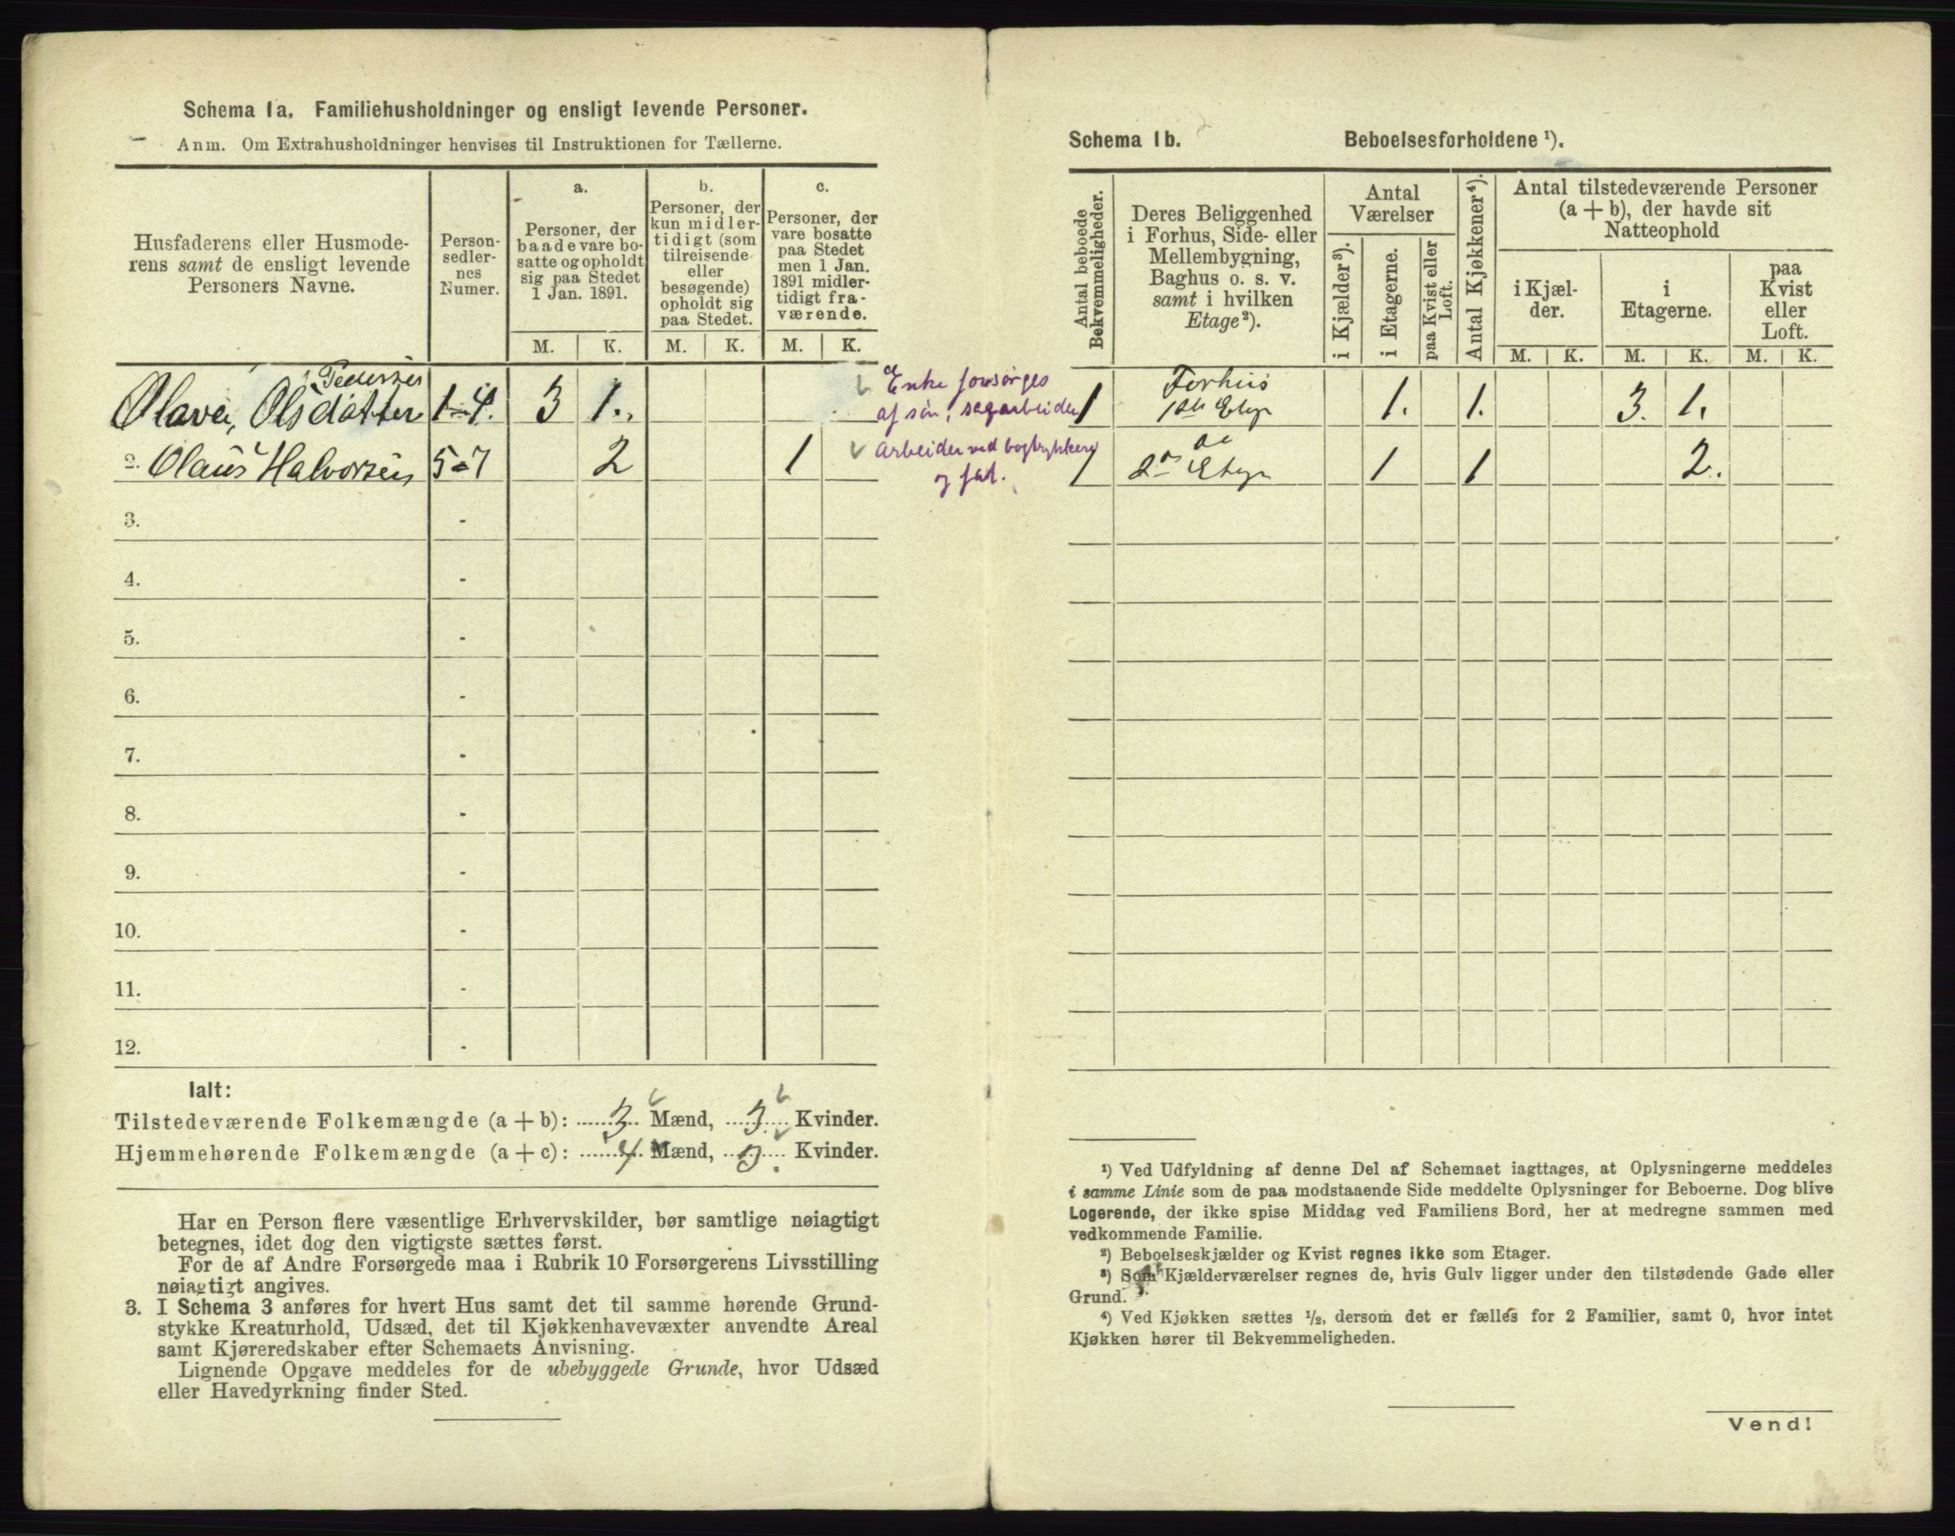 Schema 1a. Familiehusholdninger og ensligt levende Personer.
Anm. Om Extrahusholdninger henvises til Instruktionen for Tællerne.
Husfaderens eller Husmode-
rens samt de ensligt levende
Personers Navne.
Person-
sedler-
nes
Numer.
a.
Personer, der
baade vare bo-
satte og opholdt
sig paa Stedet
1 Jan. 1891.
b.
Personer, der
kun midler-
tidigt (som
tilreisende
eller
besøgende)
opholdt sig
paa Stedet.
c.
Personer, der
vare bosatte
paa Stedet
men 1 Jan.
1891 midler-
tidigt fra-
værende.
M. K. M. K. M. K.
Pedersen
Olava, Olsdatter 1-4. 3 1.
Enke forsørges
af søn, sagarbeider
2. Olaus Halvorsen 5-7 2 1
Arbeider ved bogtrykkeri
3. -
4. -
5. -
6. -
7. -
8. -
9. -
10. -
11. -
12. -
Ialt:
Tilstedeværende Folkemængde (a + b): 3 Mænd, 3 Kvinder.
Hjemmehørende Folkemængde (a + c): 4 Mænd, 3 Kvinder.
Har en Person flere væsentlige Erhvervskilder, bør samtlige nøiagtigt
betegnes, idet dog den vigtigste sættes først.
For de af Andre Forsørgede maa i Rubrik 10 Forsørgerens Livsstilling
nøiagtigt angives.
3. I Schema 3 anføres for hvert Hus samt det til samme hørende Grund-
stykke Kreaturhold, Udsæd, det til Kjøkkenhavevæxter anvendte Areal
samt Kjøreredskaber efter Schemaets Anvisning.
Lignende Opgave meddeles for de ubebyggede Grunde, hvor Udsæd
eller Havedyrkning finder Sted.
Schema 1b. Beboelsesforholdene ¹).
Antal beboede
Bekvemmeligheder.
Deres Beliggenhed
i Forhus, Side- eller
Mellembygning,
Baghus o. s. v.
samt i hvilken
Etage²).
Antal
Værelser
i Kjælder³).
i Etagerne.
paa Kvist eller
Loft.
Antal Kjøkkener⁴).
Antal tilstedeværende Personer
(a + b), der havde sit
Natteophold
i Kjæl-
der.
i
Etagerne.
paa
Kvist
eller
Loft.
M. K. M. K. M. K.
Forhus
1 1ste Etge 1. 1. 3. 1.
do
1 2den Etge 1 1 2.
¹) Ved Udfyldning af denne Del af Schemaet iagttages, at Oplysningerne meddeles
i samme Linie som de paa modstaaende Side meddelte Oplysninger for Beboerne. Dog blive
Logerende, der ikke spise Middag ved Familiens Bord, her at medregne sammen med
vedkommende Familie.
²) Beboelseskjælder og Kvist regnes ikke som Etager.
³) Som Kjælderværelser regnes de, hvis Gulv ligger under den tilstødende Gade eller
Grund.
⁴) Ved Kjøkken sættes ½, dersom det er fælles for 2 Familier, samt 0, hvor intet
Kjøkken hører til Bekvemmeligheden.
Vend!